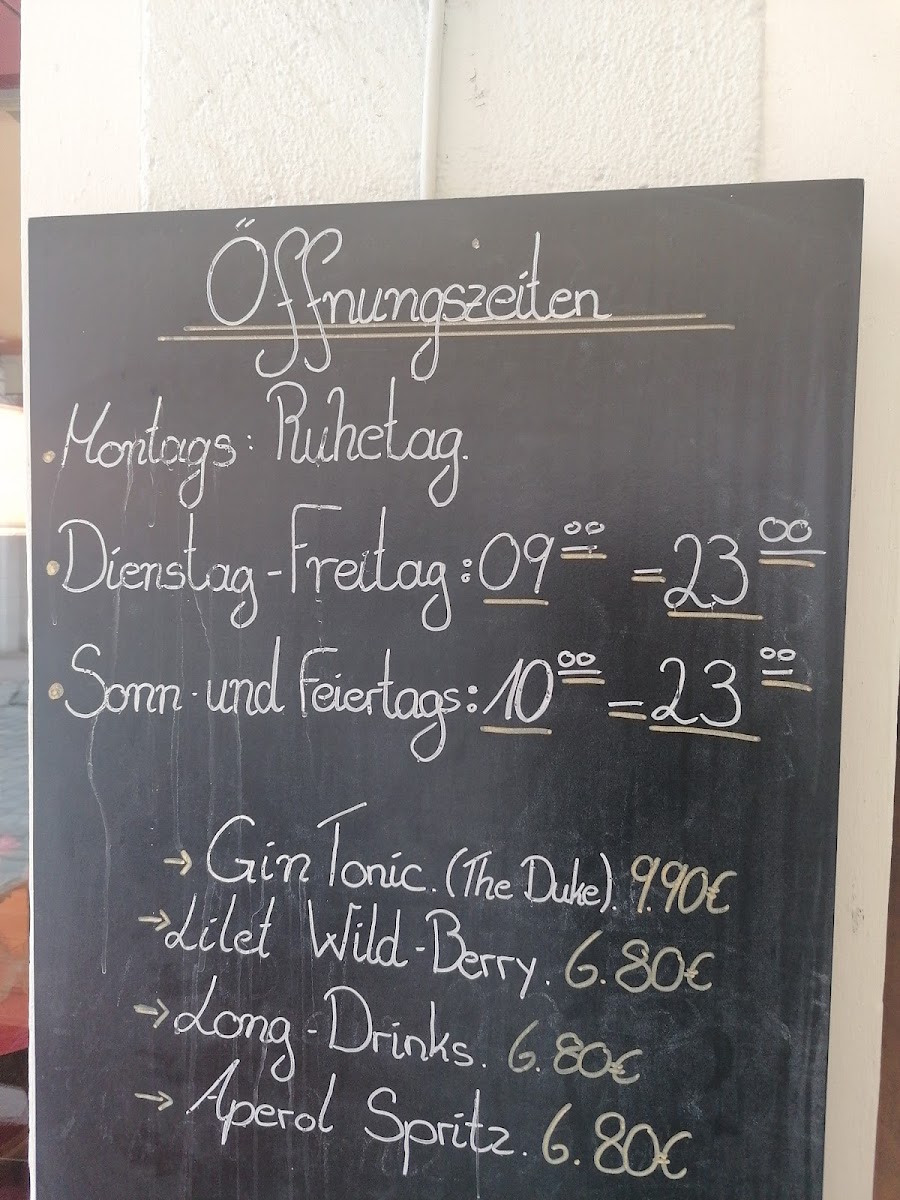 Öffnungszeiten
Montags: Ruhetag.
Dienstag-Freitag: 09⁰⁰ - 23⁰⁰
Sonn- und Feiertags: 10⁰⁰ - 23⁰⁰
→ Gin Tonic. (The Duke). 9.90€
→ Lilet Wild-Berry. 6.80€
→ Long-Drinks. 6.80€
→ Aperol Spritz. 6.80€